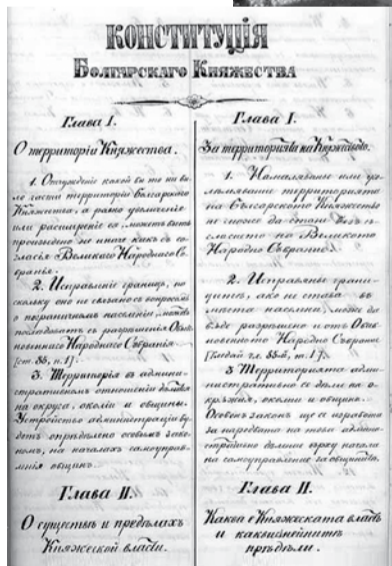 КОНСТИТУЦІЯ
БОЛГАРСКАГО КНЯЖЕСТВА
Глава I.
О территоріи Княжества.
1. Отчужденіе какой бы то ни бы-
ло части территоріи Болгарскаго
Княжества, а равно увеличеніе
или расширеніе ея, можетъ быть
произведено не иначе какъ съ со-
гласія Великаго Народнаго Со-
бранья.
2. Исправленіе границъ, по-
скольку оно не связано съ вопросомъ
о пограничномъ населеніи,
съ разрѣшенія Обык-
новеннаго Народнаго Собранія
3. Территорія въ админи-
стративномъ отношеніи дѣлится
на округа, околіи и общины.
Устройство администраціи бу-
детъ опредѣлено особымъ зако-
номъ, на началахъ самоуправ-
ленія общинъ.
Глава II.
О существѣ и предѣлахъ
Княжеской власти.
Глава I.
За территорията на Княжеството.
1. Намаляванье или уго-
лемяванье территорията
на Българското Княжество
не може да стане безъ съ-
гласието на Великото
Народно Събрание.
2. Исправянье грани-
цитѣ, ако не става въ
мѣста населени, може да
бѫде разрѣшено и отъ Обик-
новенното Народно Събрание
3 Территорията адми-
нистративно се дѣли на о-
крѫжия, околии и общини.
Особенъ законъ ще се изработи
за наредбата на това админи-
стративно деление върху начала
на самоуправление за общинитѣ.
Глава II.
Каква е Княжеската власть
и какви сѫ нейнитѣ
прѣдѣли.